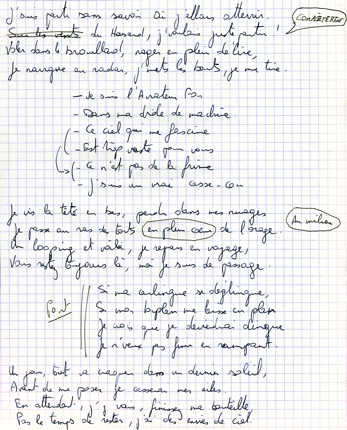 J'suis parti sans savoir où j'allais atterrir.
Sur les vents du Hasard, j'voulais juste partir !
Voler dans le brouillard, nager en plein délire,
Je navigue au radar, j'mets les bouts, je me tire
- Je suis l'Aviateur Fou
- Dans ma drôle de machine
- Ce ciel qui me fascine
- Est trop vaste pour vous
- Ce n'est pas de la frime
- J'suis un vrai casse-cou
Je vis la tête en bas, perdu dans mes nuages
Je passe au ras des toits en plein cœur de l'orage.
Au milieu
Un looping et voilà, je repars en voyage,
Vous restez toujours là, moi je suis de passage.
PONT
Si ma carlingue se déglingue,
Si mon biplan me laisse en plan
Je crois que je deviendrai dingue
Je n'veux pas finir en rampant.
Un jour, tout va craquer dans un dernier soleil,
Avant de me poser je casserai mes ailes.
En attendant, j'y vais, finissez ma bouteille,
Pas le temps de rester, j'ai des envies de ciel.